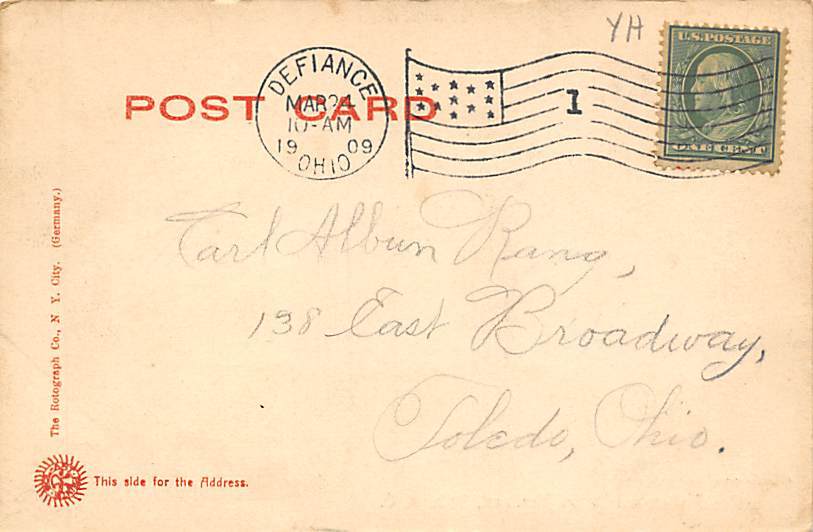 YH
U.S. POSTAGE
ONE CENT
DEFIANCE
MAR 24
10-AM
1909
OHIO
1
POST CARD
Carl Albun Rang,
138 East Broadway,
Toledo, Ohio.
The Rotograph Co., N Y. City. (Germany.)
This side for the Address.